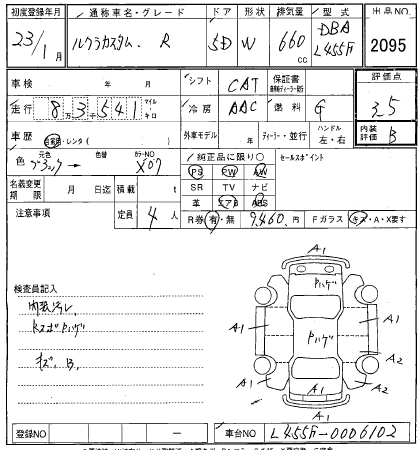 初度登録年月 通称車名・グレード ドア 形状 排気量 型式 出品NO
23/1月 ルクラカスタム. R 5D W 660cc DBA L455F 2095
車検 シフト CAT 保証書 評価点
走行 8万3千541 マイル キロ 冷房 AAC 燃料 G 3.5
車歴 自家用・レンタ( ) 外車モデル 年 ディーラー・並行 ハンドル 左・右 内装評価 B
色 元色 ブラック → 色替 カラーNO X07 純正品に限り○ セールスポイント
名義変更期限 月 日迄 積載 t PS PW AW
SR TV ナビ
定員 4人 革 エアB ABS
注意事項 R券 有・無 9,460.円 Fガラス キズ・A・X要す
検査員記入
内装汚レ.
Rスポイラハゲ
キズ.B.
A1
ハゲ
A1 ハゲ A1
A2 A2
A1
登録NO ー 車台NO L455F-0006102